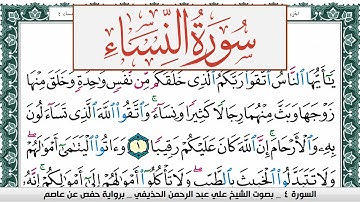 سُورَةُ النِّسَاءِ
يَٰٓأَيُّهَا ٱلنَّاسُ ٱتَّقُوا۟ رَبَّكُمُ ٱلَّذِى خَلَقَكُم مِّن نَّفْسٍ وَٰحِدَةٍ وَخَلَقَ مِنْهَا
زَوْجَهَا وَبَثَّ مِنْهُمَا رِجَالًا كَثِيرًا وَنِسَآءً ۚ وَٱتَّقُوا۟ ٱللَّهَ ٱلَّذِى تَسَآءَلُونَ
بِهِۦ وَٱلْأَرْحَامَ ۚ إِنَّ ٱللَّهَ كَانَ عَلَيْكُمْ رَقِيبًا ١ وَءَاتُوا۟ ٱلْيَتَٰمَىٰٓ أَمْوَٰلَهُمْ ۖ
وَلَا تَتَبَدَّلُوا۟ ٱلْخَبِيثَ بِٱلطَّيِّبِ ۖ وَلَا تَأْكُلُوٓا۟ أَمْوَٰلَهُمْ إِلَىٰٓ أَمْوَٰلِكُمْ ۚ إِنَّهُۥ
السورة ٤ _ بصوت الشيخ علي عبد الرحمن الحذيفي _ برواية حفص عن عاصم